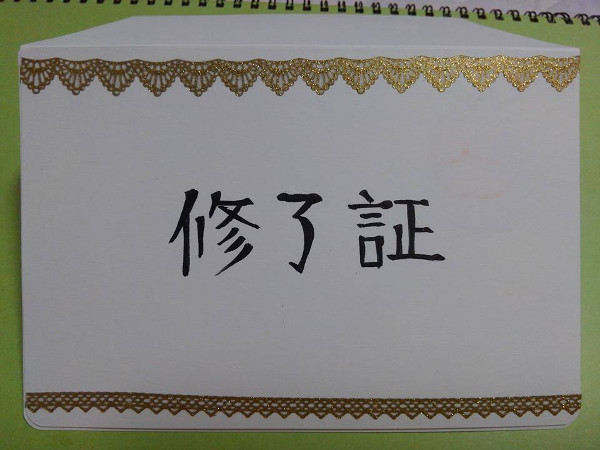 修了証